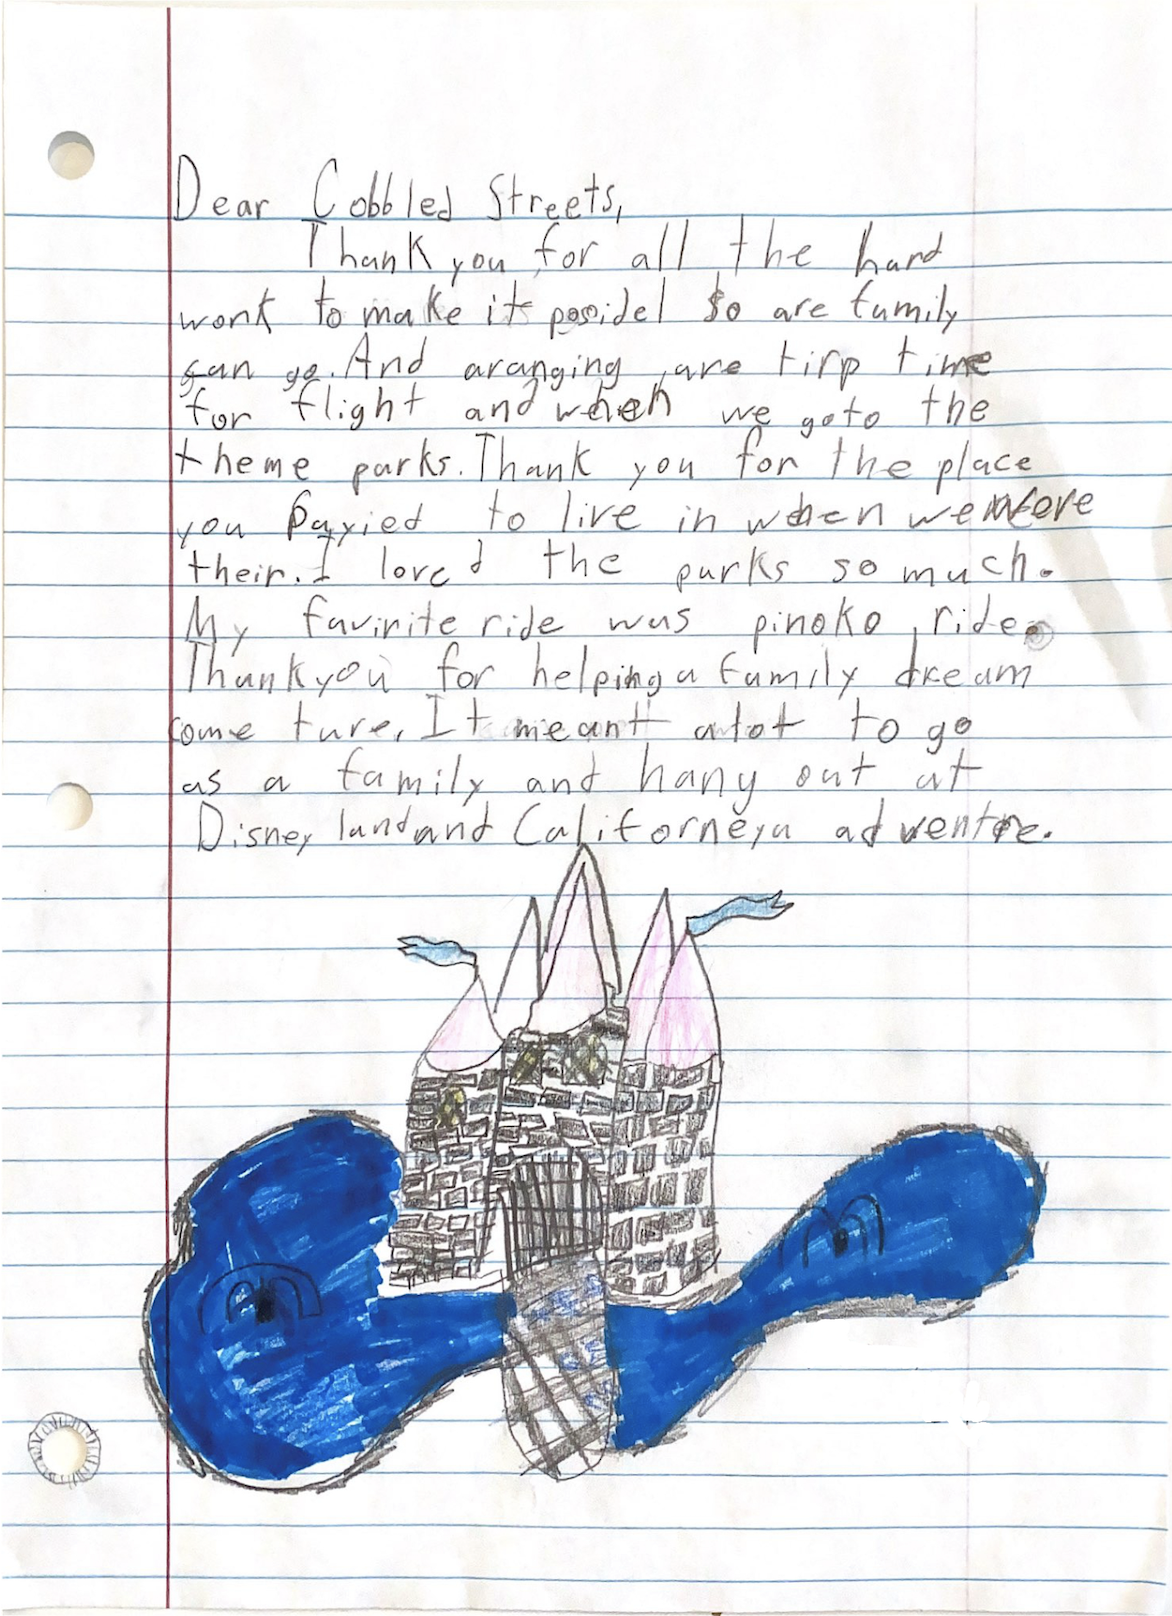 Dear Cobbled Streets,
Thank you for all the hard
work to make it posidel so are family
can go. And aranging are tirp time
for flight and when we go to the
theme parks. Thank you for the place
you payied to live in when we were
their. I loved the parks so much.
My favirite ride was pinoko ride.
Thank you for helping a family dream
come ture. It meant alot to go
as a family and hany out at
Disney land and Californeya adventre.